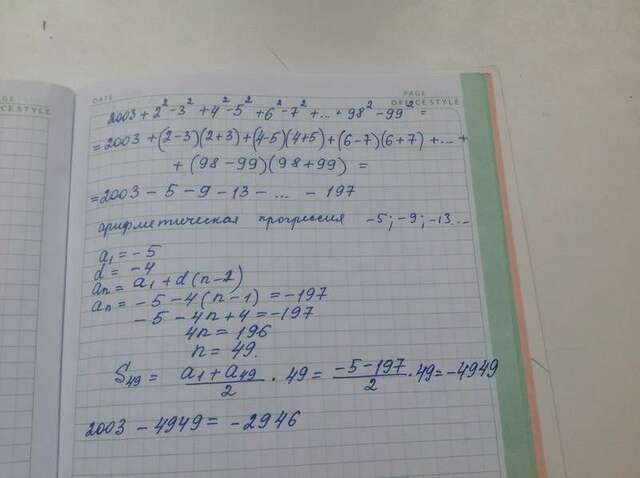 DATE
PAGE
OFFICE STYLE
2003 + 2² - 3² + 4² - 5² + 6² - 7² + ... + 98² - 99² =
= 2003 + (2-3)(2+3) + (4-5)(4+5) + (6-7)(6+7) + ... +
+ (98-99)(98+99) =
= 2003 - 5 - 9 - 13 - ... - 197
арифметическая прогрессия -5; -9; -13...
a₁ = -5
d = -4
aₙ = a₁ + d(n-1)
aₙ = -5 - 4(n-1) = -197
-5 - 4n + 4 = -197
4n = 196
n = 49.
S₄₉ = (a₁ + a₄₉)/2 · 49 = (-5-197)/2 · 49 = -4949
2003 - 4949 = -2946